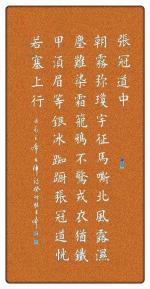 張冠道中
朝霧弥瓊宇征馬嘶北風露濕
塵難染霜籠鴉不驚戎衣猶鐵
甲須眉等銀冰踟躕張冠道恍
若塞上行